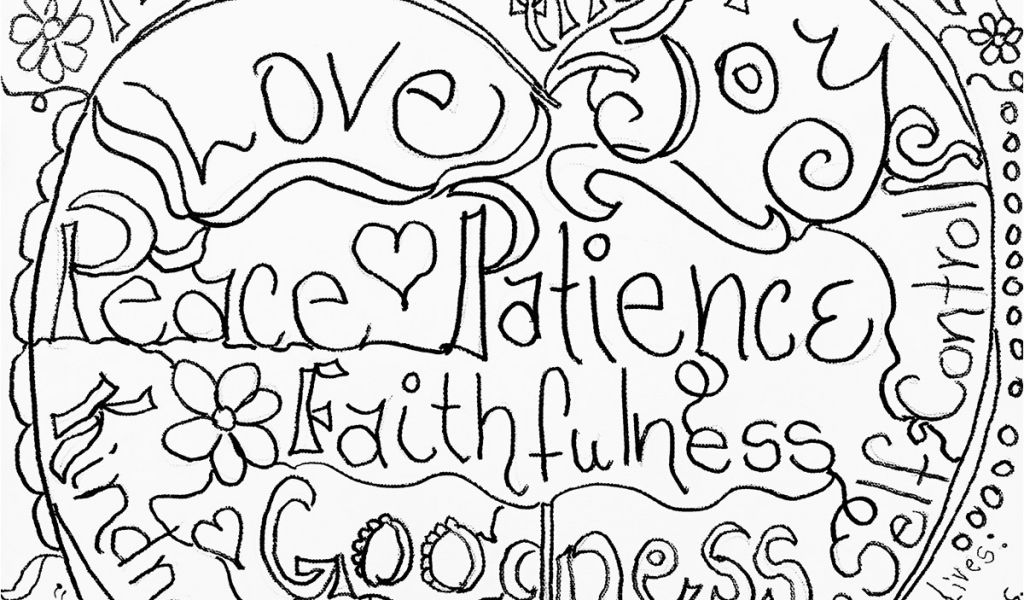 Love Joy
Peace Patience
Faithfulness
Self Control
Kind
Goodness
lives.